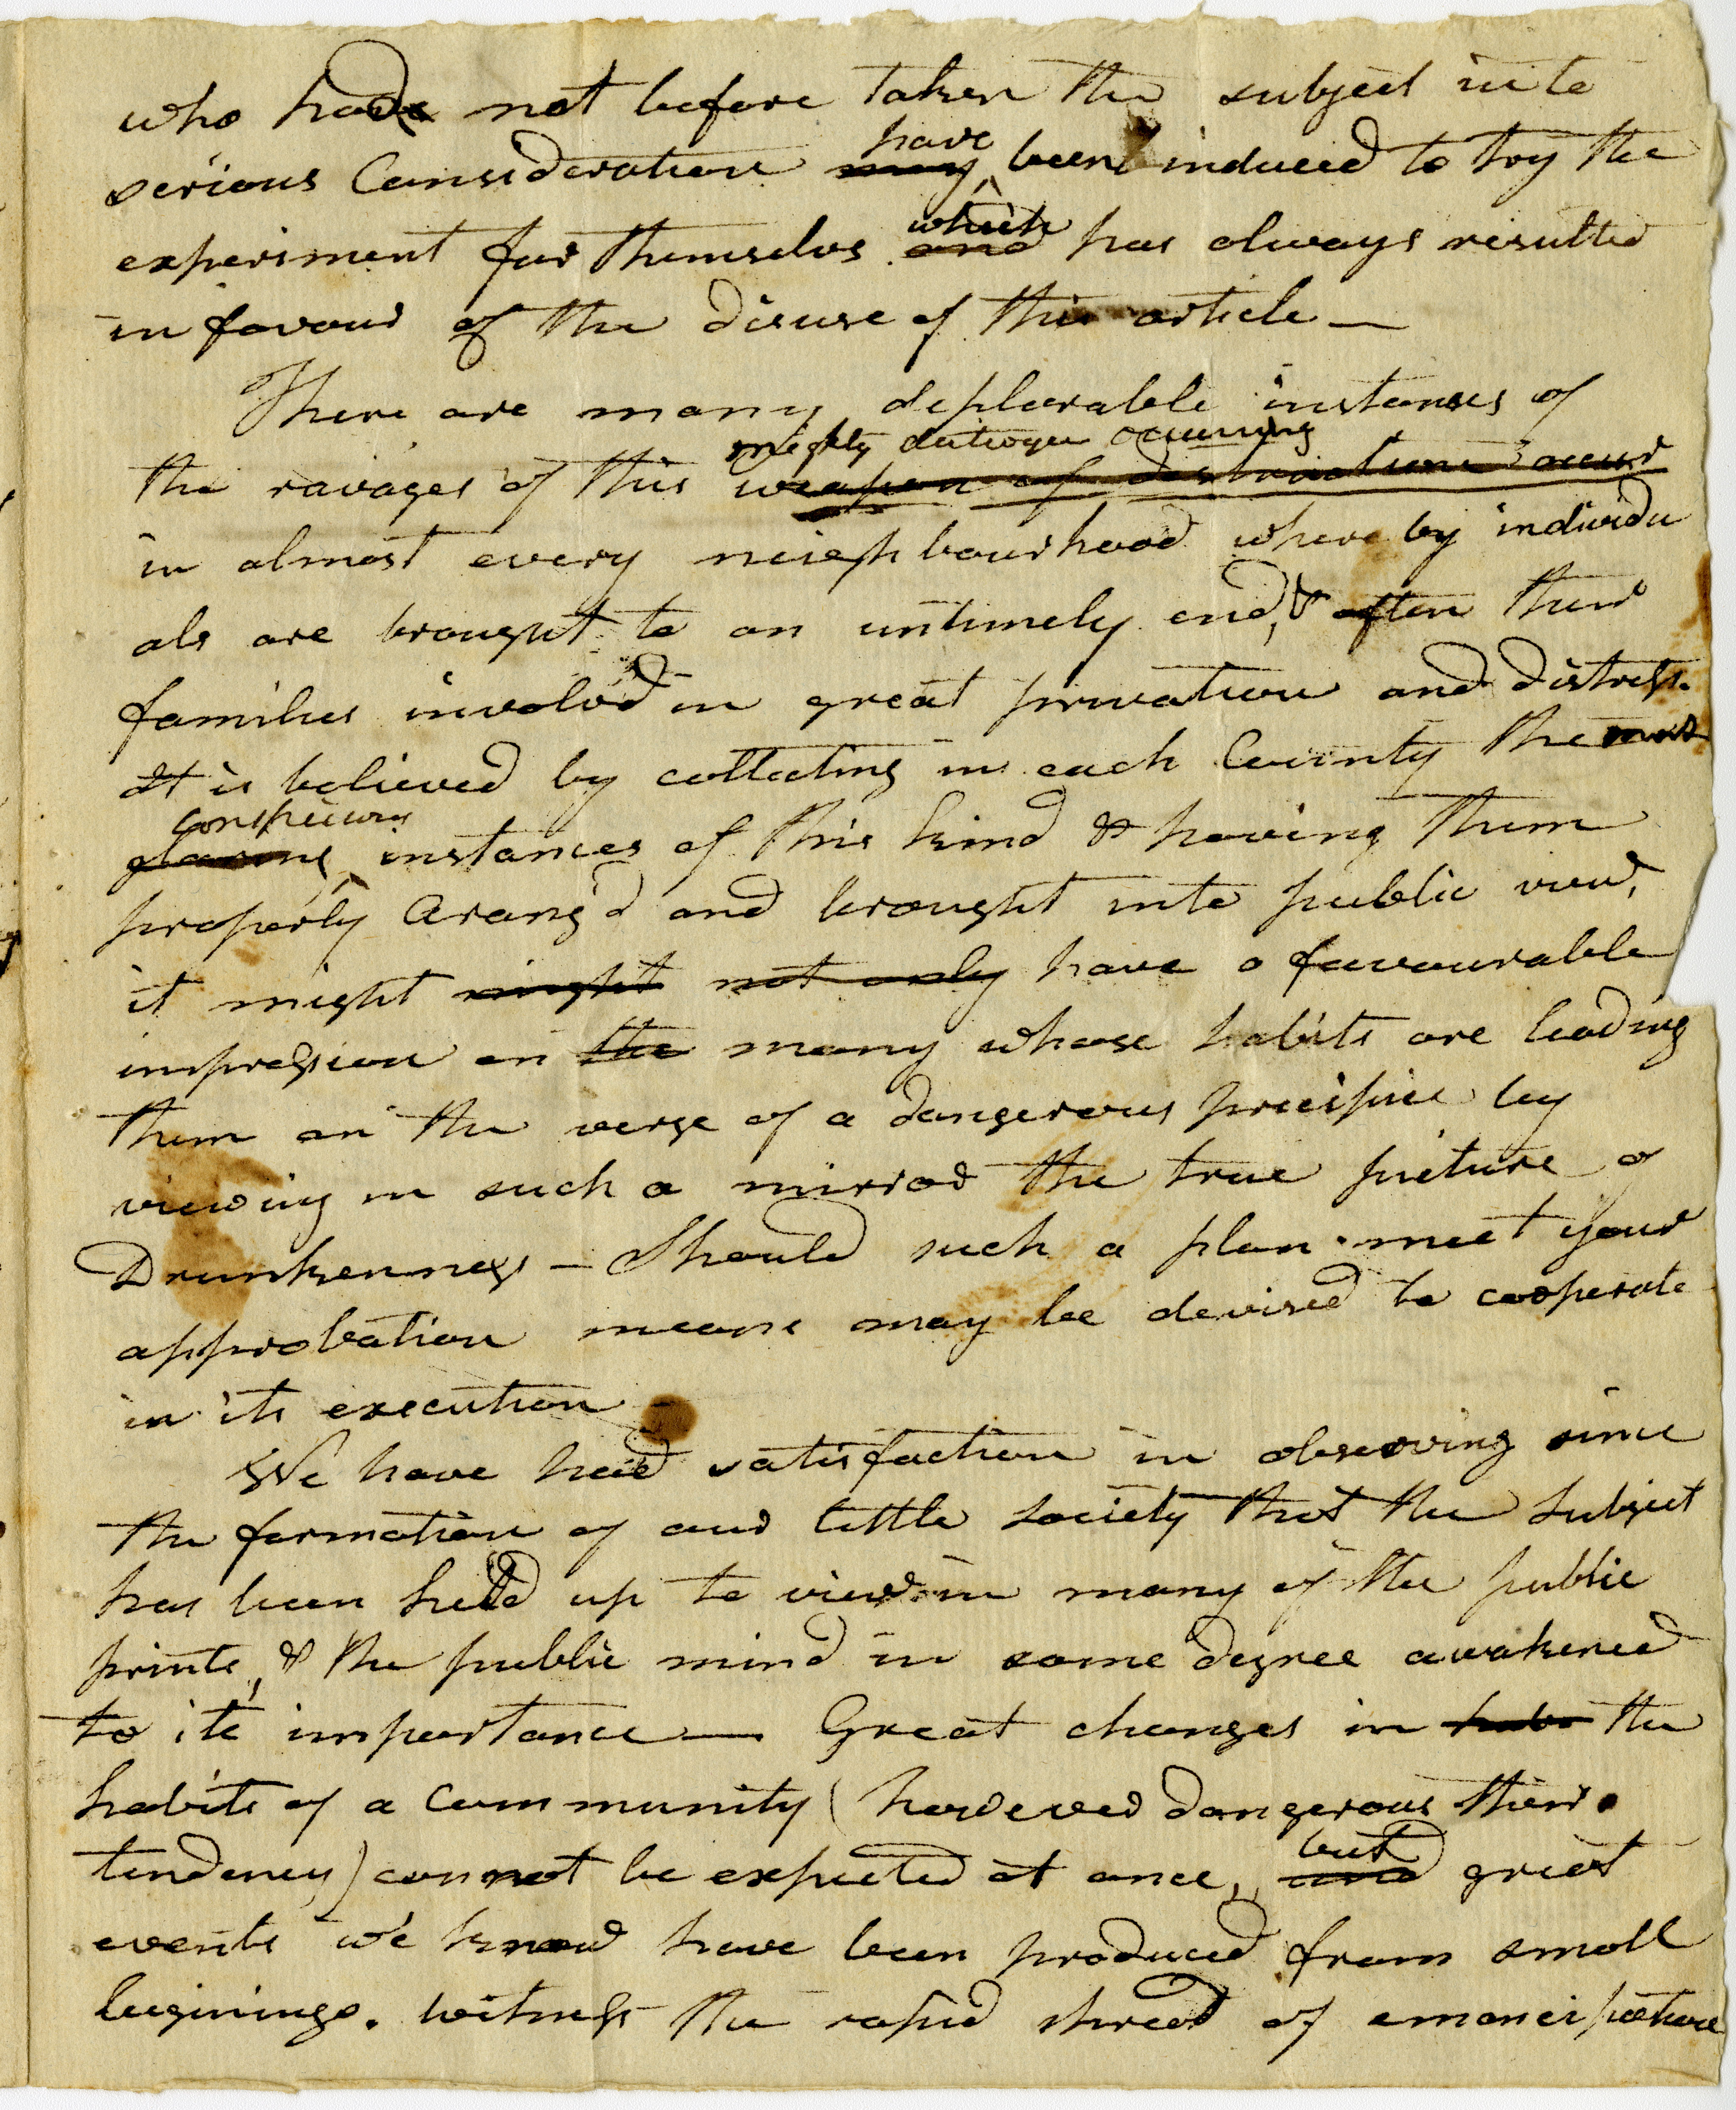 who had not before taken the subject into
serious Consideration may have been induced to try the
experiment for themselvs and which has always resulted
in favour of the disuse of this article —
There are many deplorable instances of
the ravages of this weapon of destruction occur mighty destroyer occurring
in almost every neighbourhood where by individu
als are brought to an untimely end, & often their
families involv'd in great privation and distress.
It is believed by collecting in each County the most
glaring conspicuous instances of this kind & having them
properly Arang'd and brought into public view,
it might might not only have a favourable
impression on the many whose habits are leading
them on the verge of a dangerous precipice by
viewing in such a mirror the true picture of
Drunkenness — Should such a plan meet your
approbation means may be devised to cooperate
in its execution
We have had satisfaction in observing since
the formation of our little Society that the Subject
has been held up to view in many of the public
prints, & the public mind in some degree awakened
to its importance — Great changes in habs the
habits of a Community (however dangerous their
tendency) cannot be expected at once, and but great
events we know have been produced from small
beginings. witness the rapid spread of emancipation